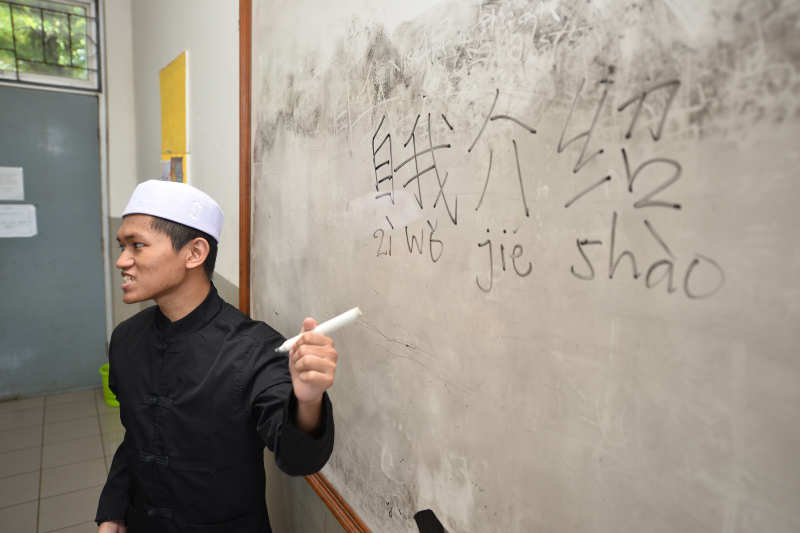 自我介绍
zì wǒ jiè shào